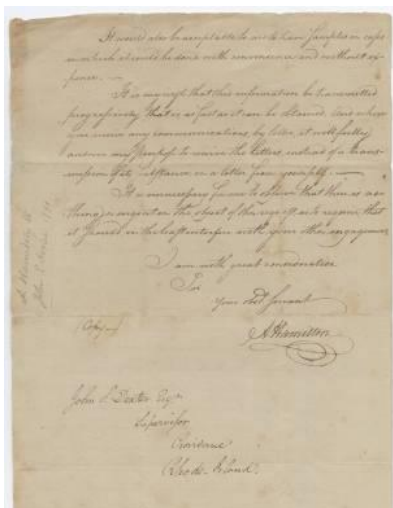 It would also be acceptable to me to have samples in cases
in which it could be done with convenience and without ex-
pence. —
It is enough that this information be transmitted
progressively, that is as fast as it can be obtained. And where
you receive any communications, by letter, it will fully
answer my purpose to receive the letters, instead of a trans-
mission of its substance in a letter from yourself. —
It is unnecessary for me to observe that there is no-
thing so urgent in the object of this request as to require that
it should in the least interfere with your other engagements
I am with great consideration
Sir
Your Obedt Servant
A Hamilton
(Copy)
John S. Dexter Esqr
Supervisor
Providence
Rhode Island.
A Hamilton to
John S Dexter